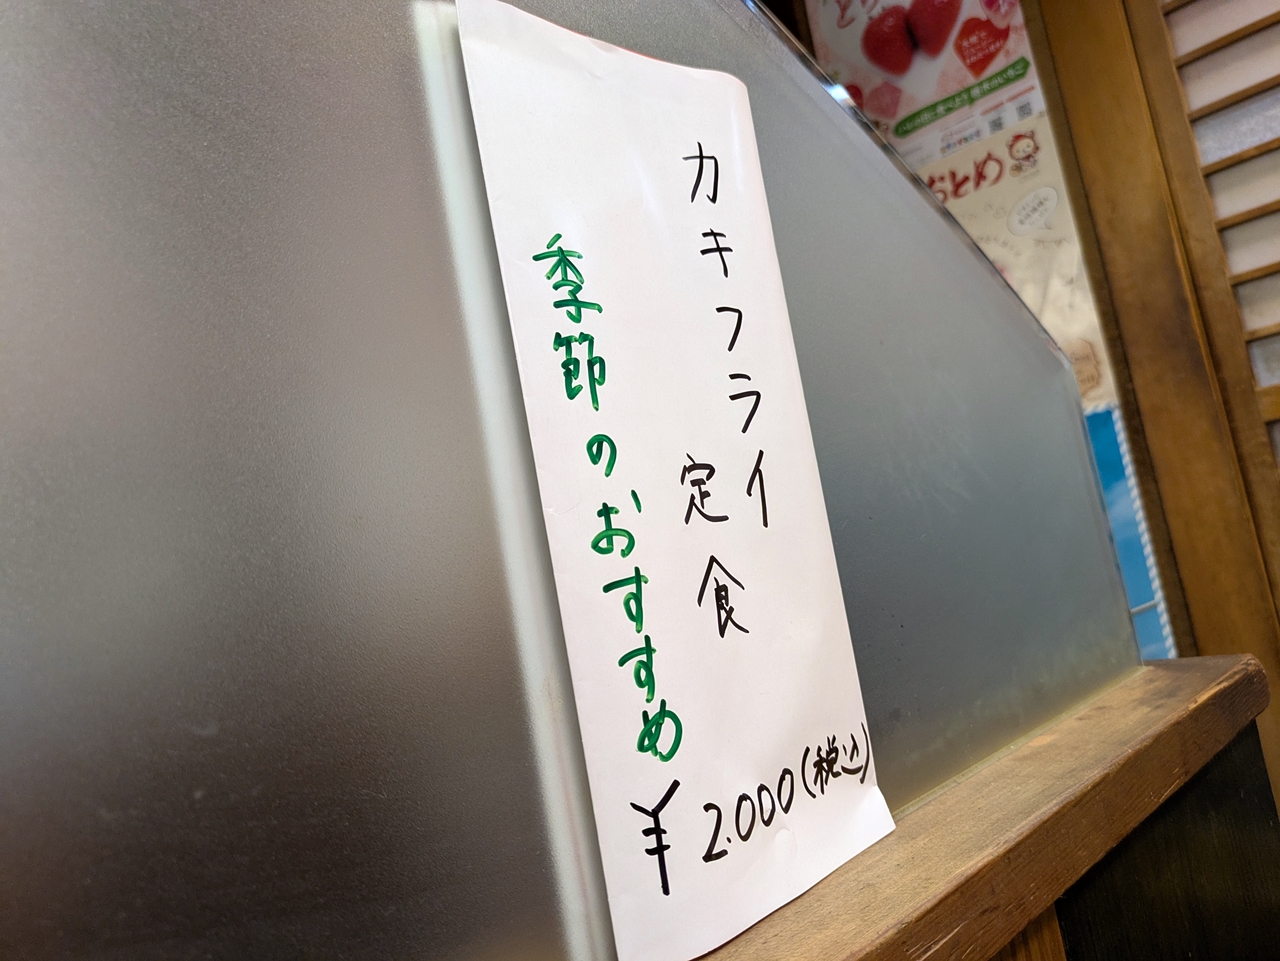 カキフライ
定食
季節のおすすめ
¥2.000(税込)
おとめ